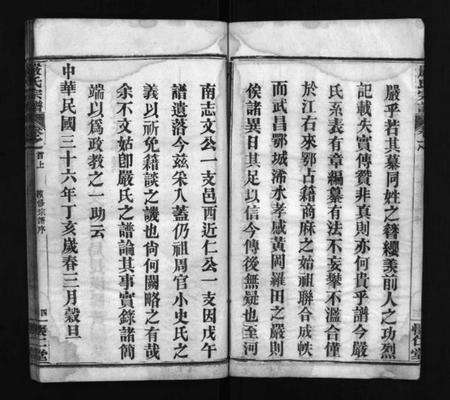 嚴乎若其慕同姓之簪纓羨前人之功烈
記載失實傳贊非真則亦何貴乎譜今嚴
氏系表有章編纂有法不妄舉不濫合僅
於江右來鄂占籍商麻之始祖聯合成帙
而武昌鄂城浠水孝感黃岡羅田之嚴則
俟諸異日其足以信今傳後無疑也至河
南志文公一支邑西近仁公一支因戊午
譜遺落今茲采入蓋仍祖周官小史氏之
義以祈免籍談之譏也尚何闕略之有哉
余不文姑卽嚴氏之譜論其事實錄諸簡
端以為政教之一助云
中華民國三十六年丁亥歲春三月穀旦
嚴氏宗譜
卷之首上
四